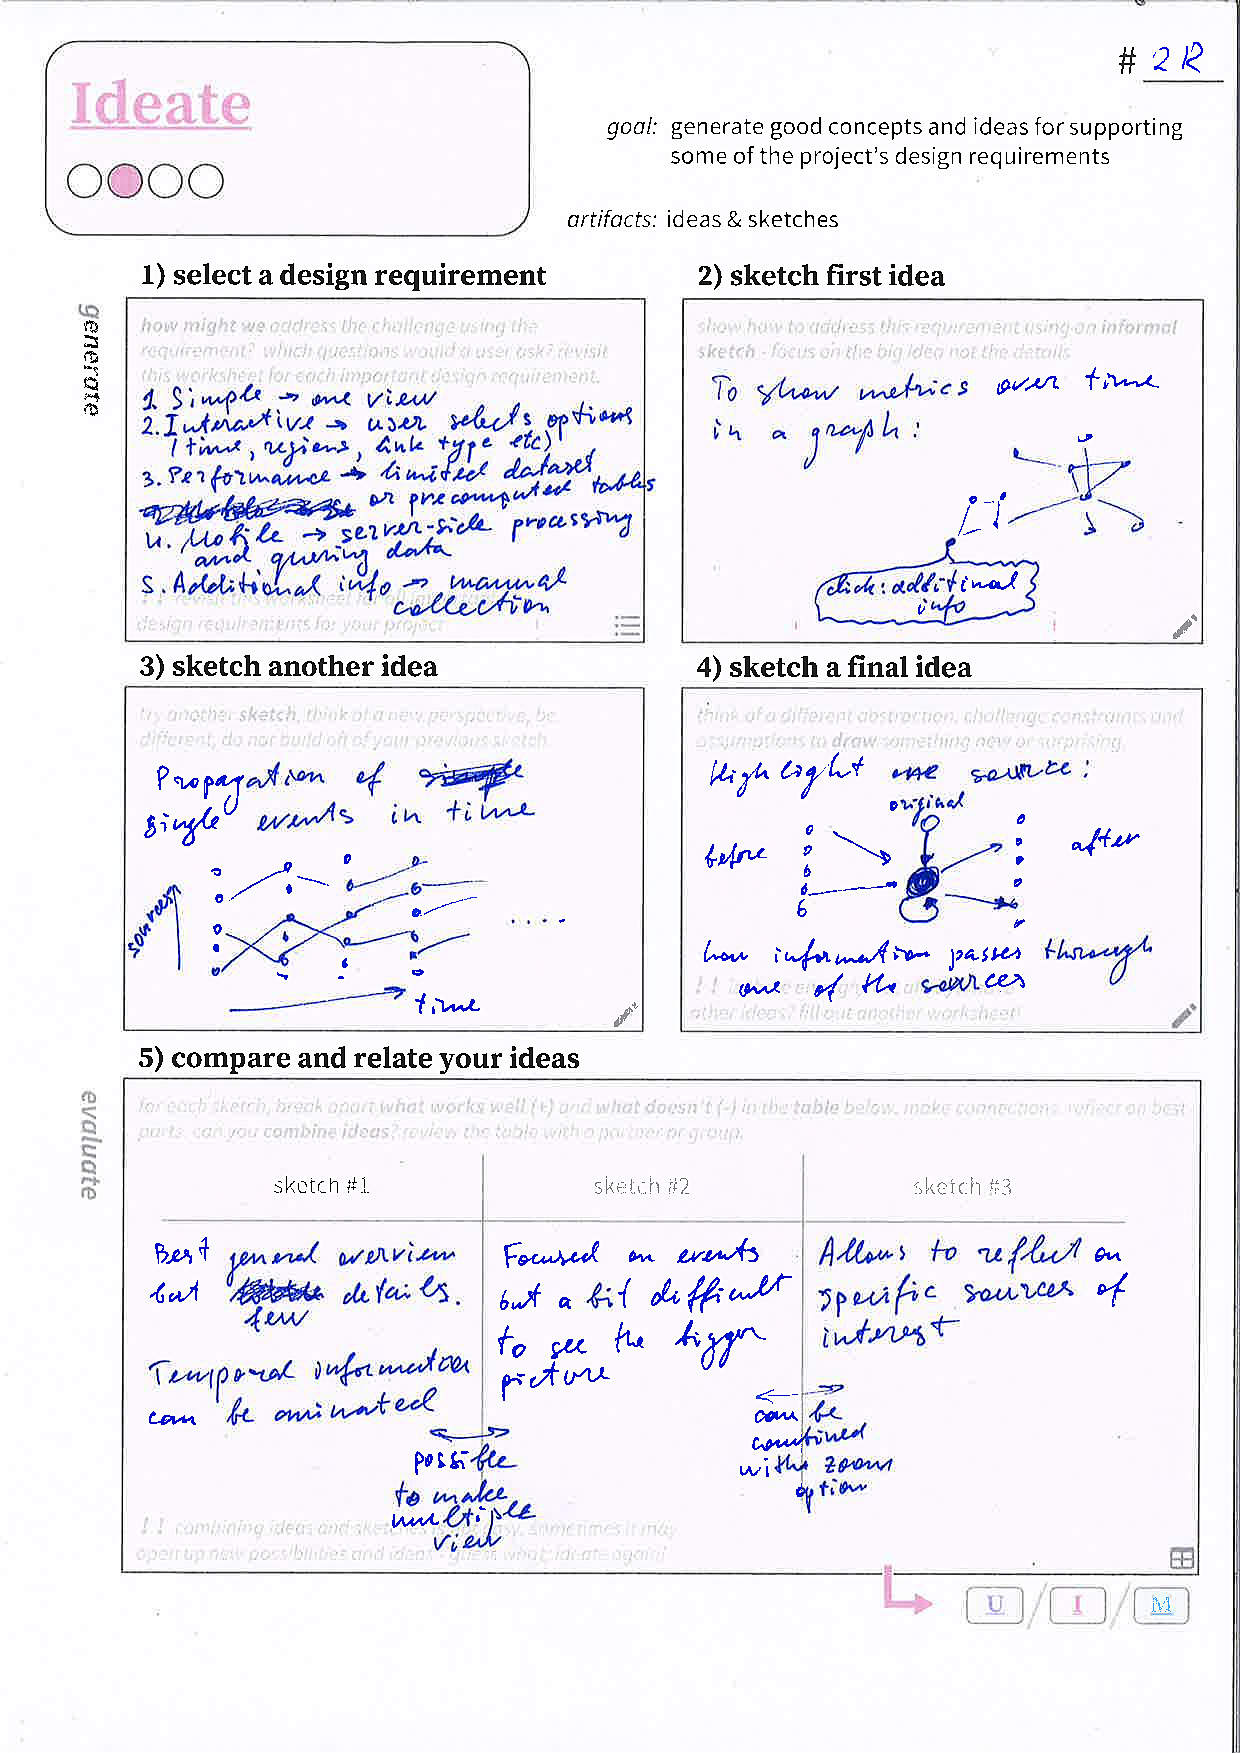 # 2R
Ideate
goal: generate good concepts and ideas for supporting
some of the project's design requirements
artifacts: ideas & sketches
generate
1) select a design requirement
how might we address the challenge using the
requirement? which questions would a user ask? revisit
this worksheet for each important design requirement.
1. Simple → one view
2. Interactive → user selects options
(time, regions, link type etc)
3. Performance → limited dataset
or precomputed tables
4. Mobile → server-side processing
and quering data
5. Additional info → manual
collection
!! revisit this worksheet for all
design requirements for your project
2) sketch first idea
show how to address this requirement using an informal
sketch - focus on the big idea not the details
To show metrics over time
in a graph:
click: additinal
info
3) sketch another idea
try another sketch, think of a new perspective, be
different, do not build off of your previous sketch.
Propagation of
single events in time
sources
....
time
4) sketch a final idea
think of a different abstraction, challenge constraints and
assumptions to draw something new or surprising.
Highlight one source:
original
before
after
how information passes through
one of the sources
other ideas? fill out another worksheet!
evaluate
5) compare and relate your ideas
for each sketch, break apart what works well (+) and what doesn't (-) in the table below. make connections. reflect on best
parts. can you combine ideas? review the table with a partner or group.
sketch #1
sketch #2
sketch #3
Best general overview
but details.
few
Temporal information
can be animated
Focused on events
but a bit difficult
to see the bigger
picture
Allows to reflect on
specific sources of
interest
possible
to make
multiple
view
can be
combined
with zoom
option
!! combining ideas and sketches is not easy, sometimes it may
open up new possibilities and ideas - guess what, ideate again!
U / I / M